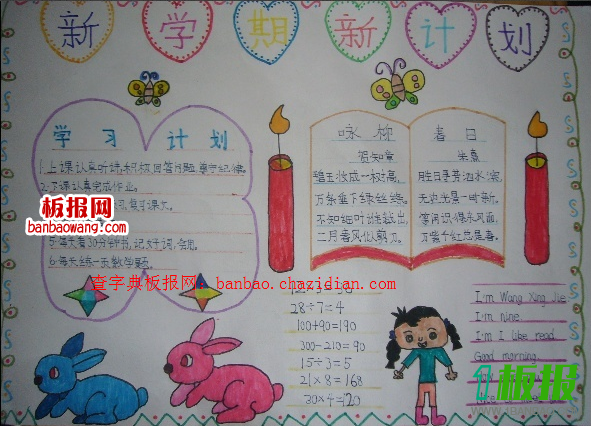 新学期新计划
学习计划
1.上课认真听讲,积极回答问题,遵守纪律。
2.下课认真完成作业。
习,复习课文。
5.每天看30分钟书,记好词、好句。
6.每天练一页数学题。
板报网
baobanwang.com
查字典板报网:banbao.chazidian.com
咏柳
贺知章
碧玉妆成一树高,
万条垂下绿丝绦。
不知细叶谁裁出,
二月春风似剪刀。
春日
朱熹
胜日寻芳泗水滨,
无边光景一时新。
等闲识得东风面,
万紫千红总是春。
28÷7=4
100+90=190
300-210=90
15÷3=5
21×8=168
30×4=120
I'm Wang Xing Jie
I'm nine.
I'm I like read
Good morning.
板报